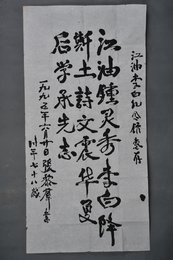 江油李白纪念馆惠存
江油钟灵秀李白降
斯土诗文震华夏
后学承先志
一九九三年六月廿日张
时年七十八岁